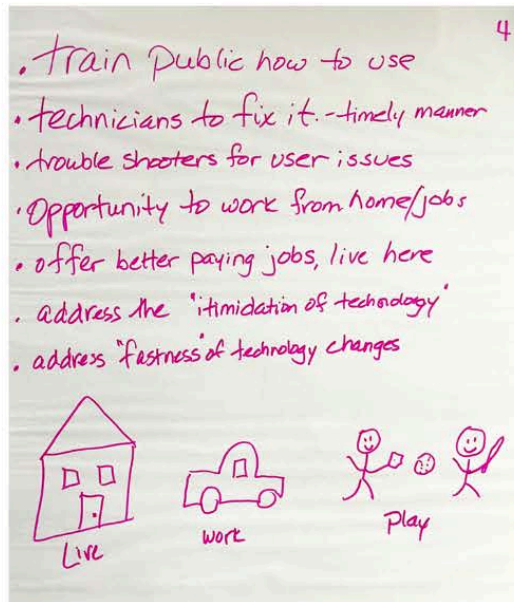 4
• train public how to use
• technicians to fix it. - timely manner
• trouble shooters for user issues
• Opportunity to work from home/jobs
• offer better paying jobs, live here
• address the "itimidation of technology"
• address "fastness" of technology changes
Live
work
Play